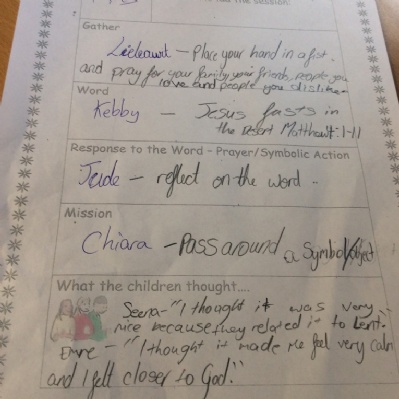 the session:
Gather
– Place your hand in a fist.
and pray for your family, your friends, people you
love and people you dislike.
Word
Kebby – Jesus fasts in
the desert Matthew 4:1-11
Response to the Word - Prayer/Symbolic Action
Jude – reflect on the word ..
Mission
Chiara – Pass around a symbol/object
What the children thought....
Seena – "I thought it was very
nice because they related it to Lent.
Emre – "I thought it made me feel very calm
and I felt closer to God."